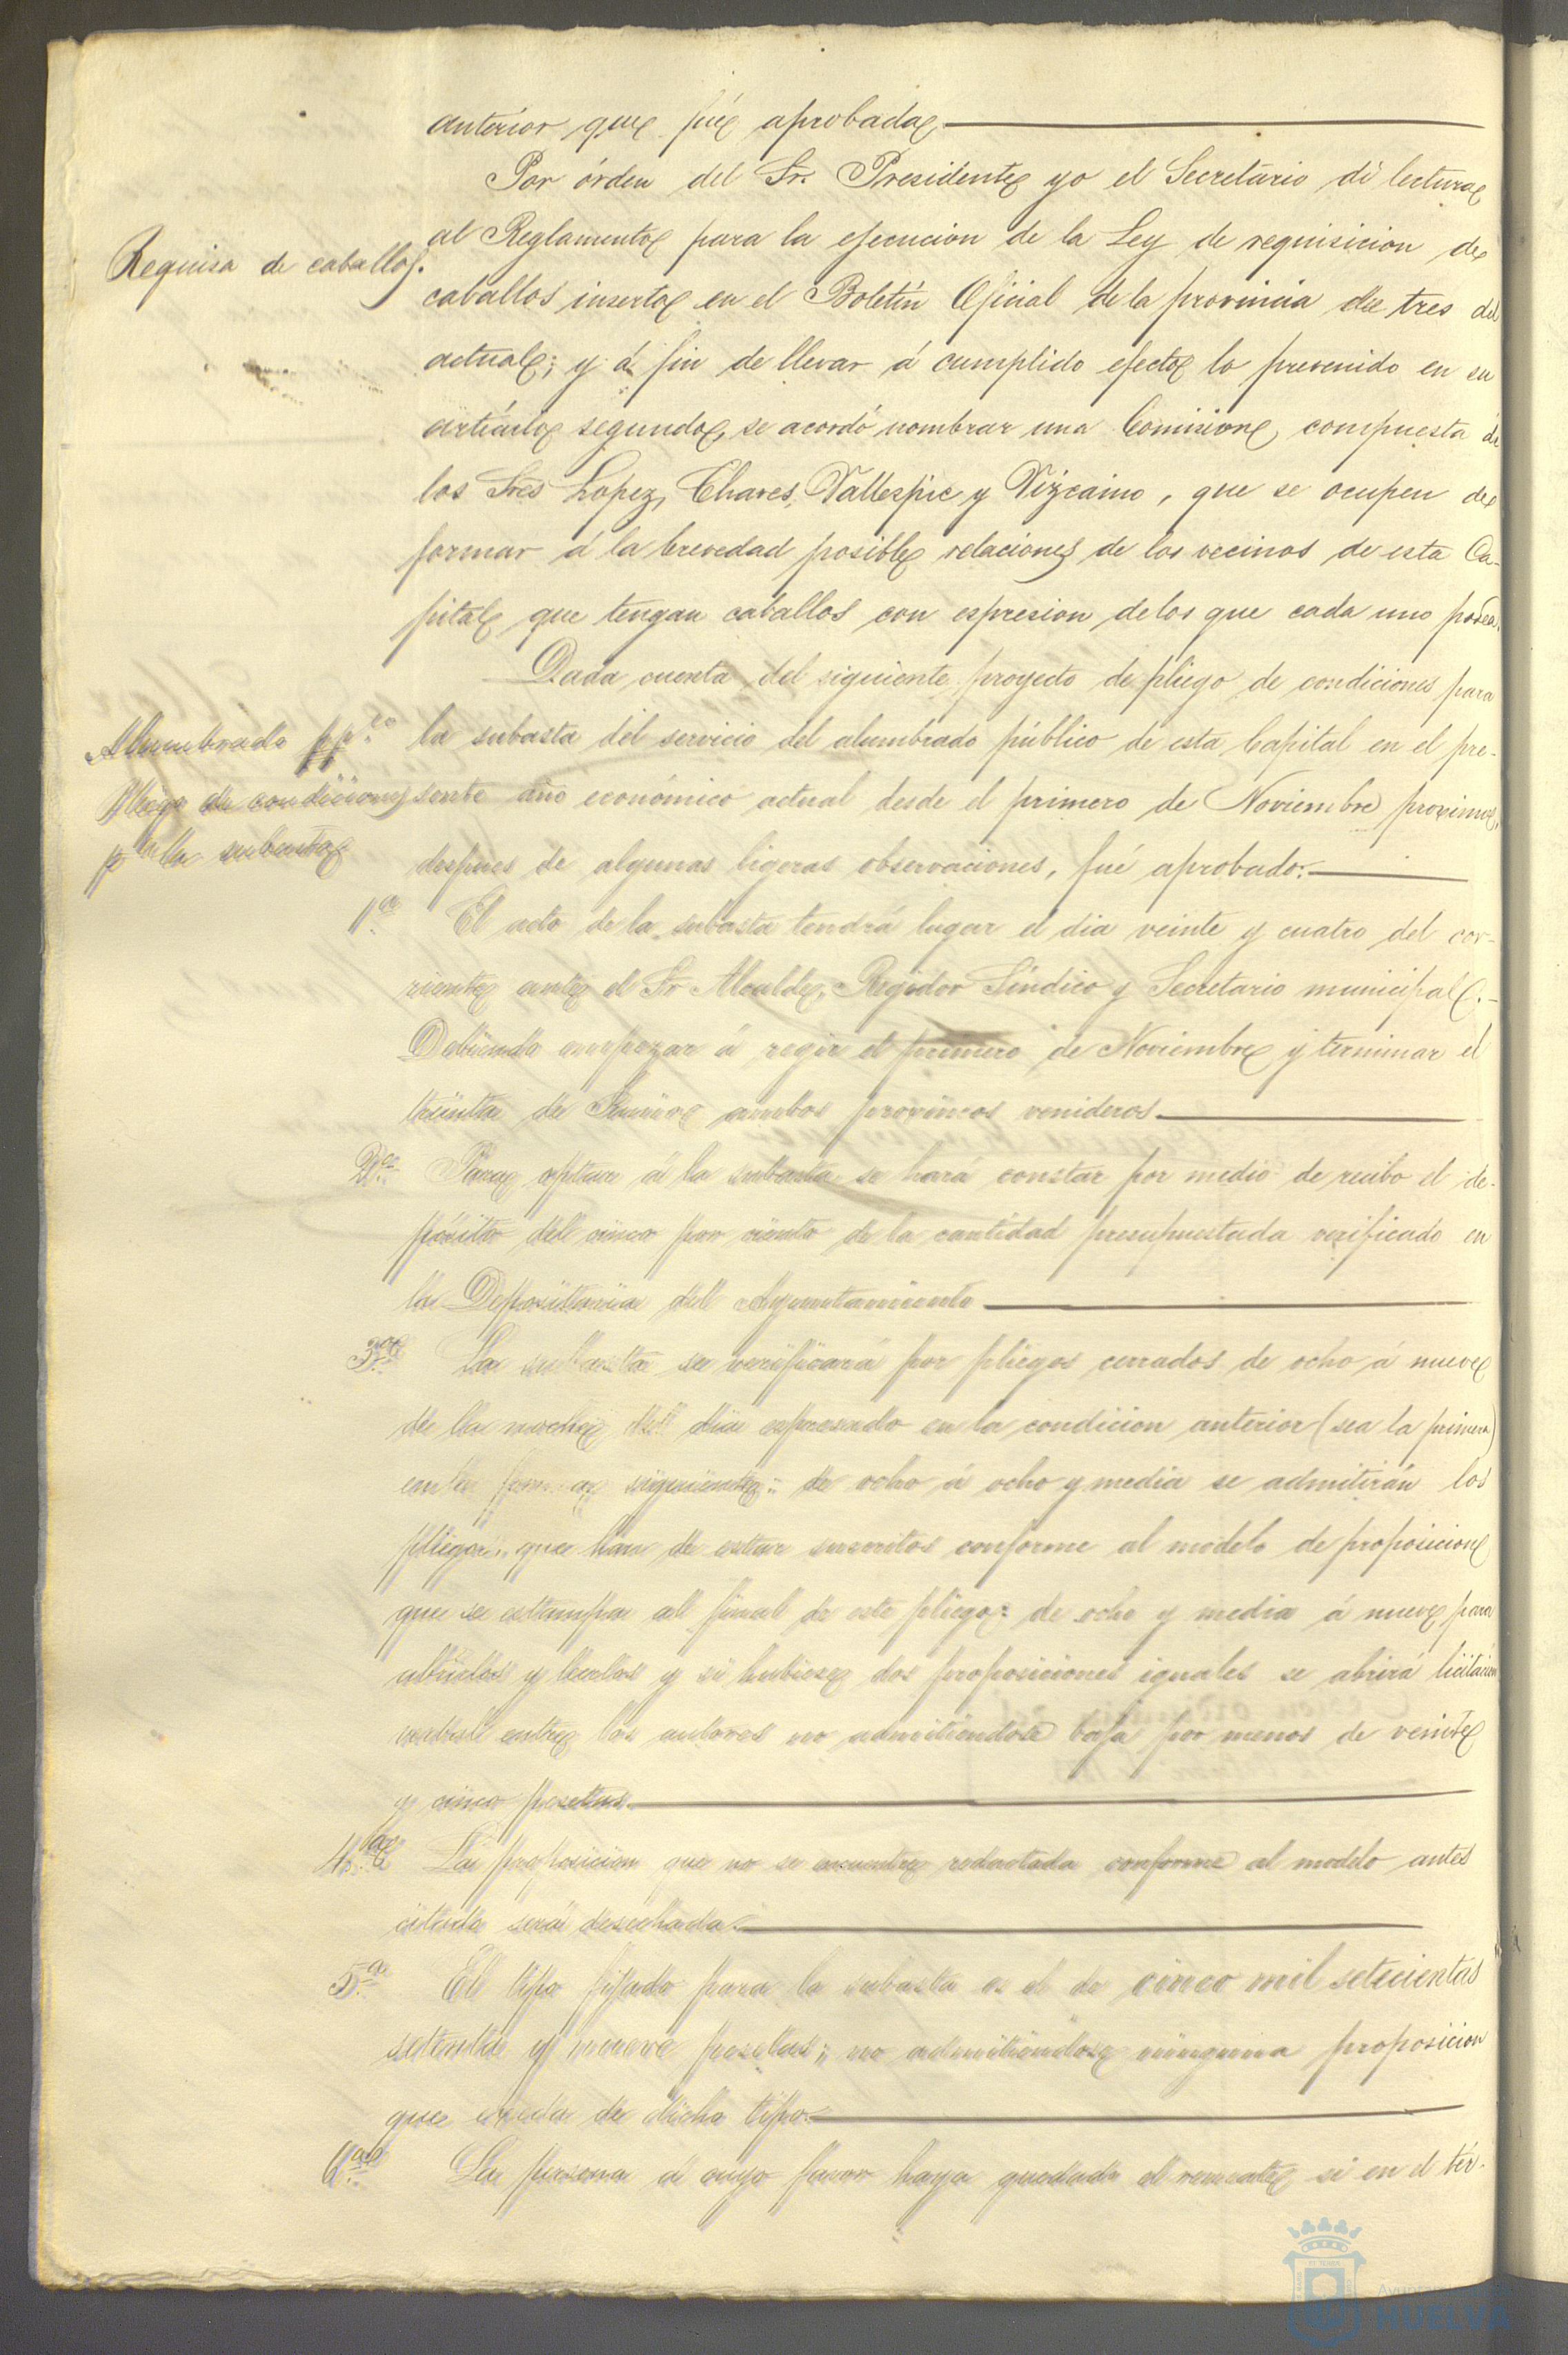 anterior que fué aprobada
Por órden del Sr. Presidente yo el Secretario dí lectura
Requisa de caballos.
al Reglamento para la ejecucion de la Ley de requisicion de
caballos inserto en el Boletín Oficial de la provincia de tres del
actual; y á fin de llevar á cumplido efecto lo prevenido en su
artículo segundo, se acordó nombrar una Comision, compuesta de
los Sres Lopez, Chaves, Vallespic y Vizcaino, que se ocupen de
formar á la brevedad posible relaciones de los vecinos de esta Ca-
pital que tengan caballos con espresion de los que cada uno posea.
Dada cuenta del siguiente proyecto de pliego de condiciones para
Alumbrado pp.co
Pliego de condiciones
pa la subasta
la subasta del servicio del alumbrado público de esta Capital en el pre-
sente año económico actual desde el primero de Noviembre proximo,
despues de algunas ligeras observaciones, fué aprobado:
1.a El acto de la subasta tendrá lugar el dia veinte y cuatro del cor-
riente ante el Sr Alcalde, Regidor Síndico y Secretario municipal.-
Debiendo empezar á regir el primero de Noviembre y terminar el
treinta de Junio ambos proximos venideros.
2.a Para optar á la subasta se hará constar por medio de recibo el de-
pósito del cinco por ciento de la cantidad presupuestada verificado en
la Depositaria del Ayuntamiento
3.a La subasta se verificará por pliegos cerrados de ocho á nueve
de la noche del dia espresado en la condicion anterior (sea la primera)
en la forma siguiente: de ocho á ocho y media se admitirán los
pliegos que han de estar suscritos conforme al modelo de proposicion
que se estampa al final de este pliego: de ocho y media á nueve para
abrirlos y leerlos y si hubiese dos proposiciones iguales se abrirá licitacion
verbal entre los autores no admitiéndose baja por menos de veinte
y cinco pesetas.
4.a La proposicion que no se encuentre redactada conforme al modelo antes
citado será desechada.
5.a El tipo fijado para la subasta es el de cinco mil setecientas
setenta y nueve pesetas; no admitiéndose ninguna proposicion
que exceda de dicho tipo.
6.a La persona á cuyo favor haya quedado el remate, si en el tér-
HUELVA